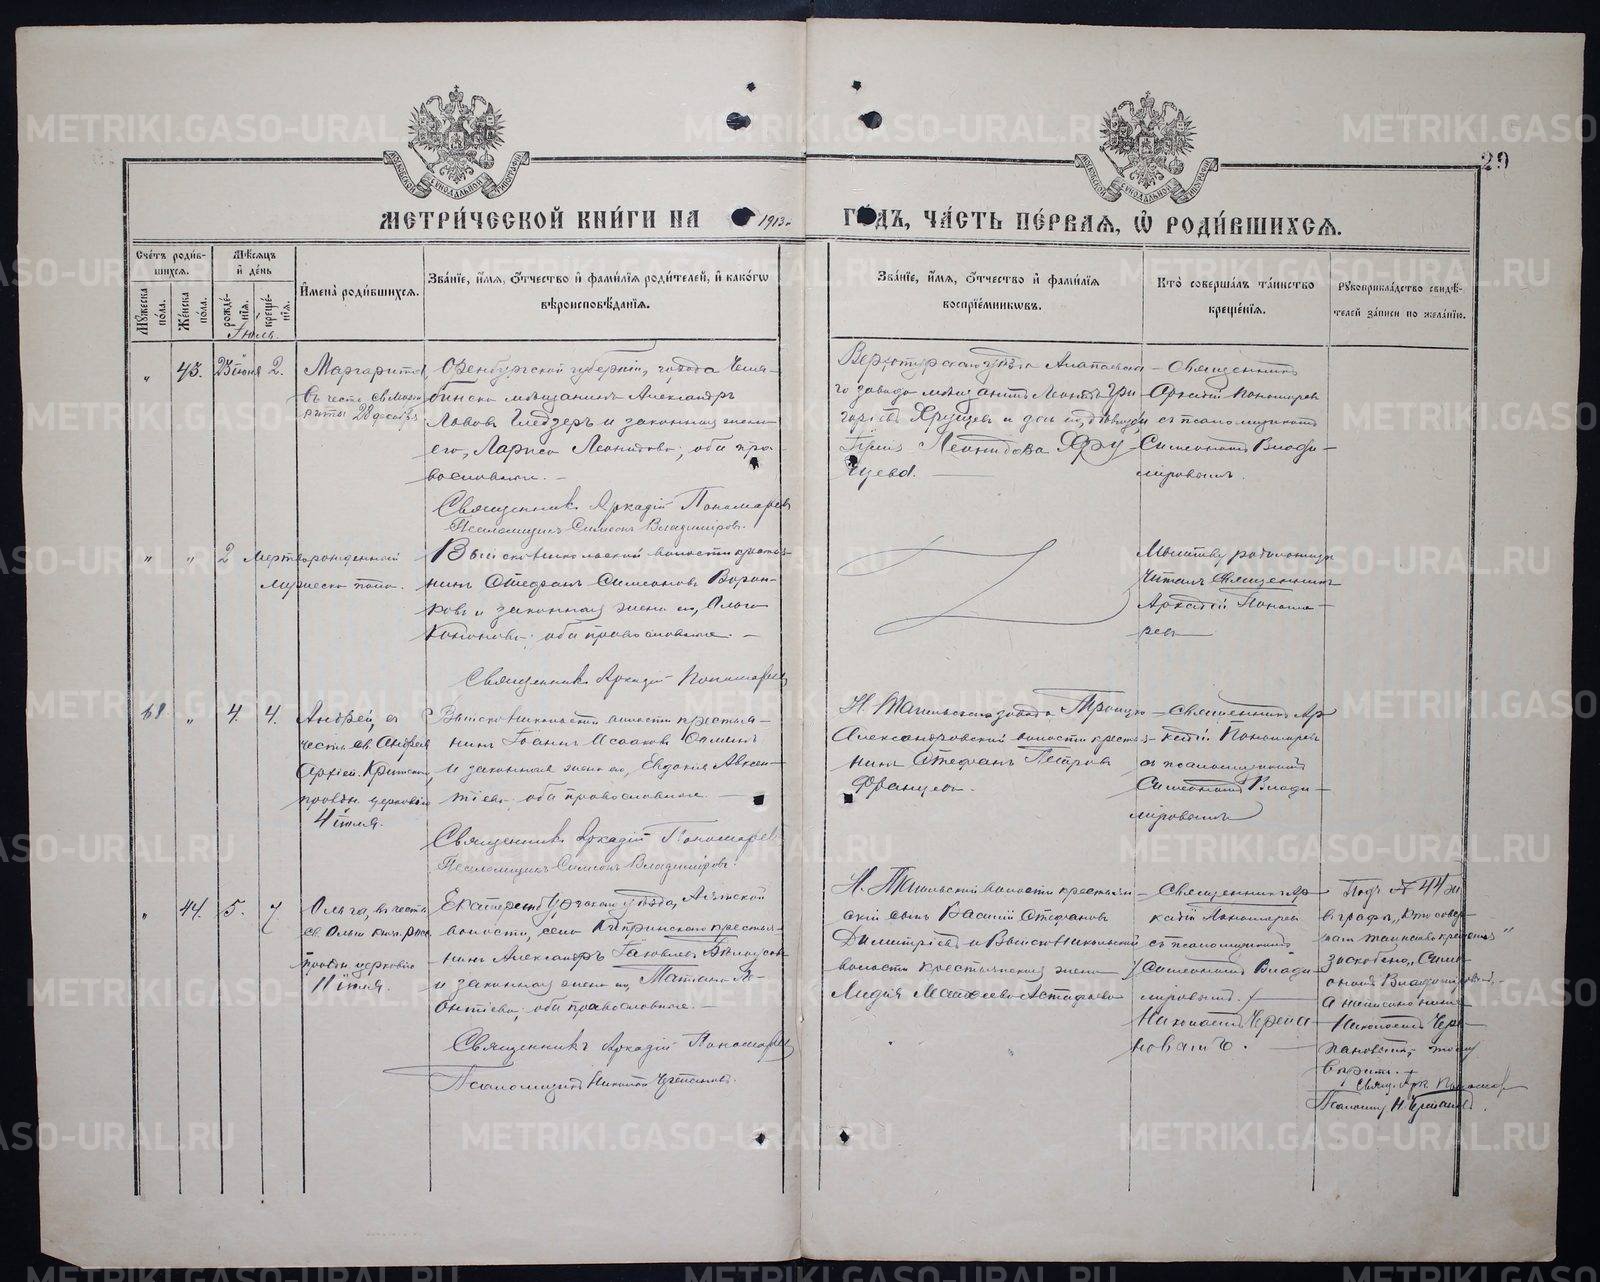 29
МЕТРИ́ЧЕСКОЙ КНИ́ГИ НА 1913 ГО́ДЪ, ЧА́СТЬ ПЕ́РВАЯ, Ѡ РОДИ́ВШИХСЯ.
Сче́тъ роди́вшихся.
Му́жеска по́ла.
Же́нска по́ла.
Мѣ́сяцъ и де́нь
рожде́нія.
креще́нія.
Имена́ роди́вшихся.
Зва́ніе, и́мя, о́тчество и фами́лія роди́телей, и како́гѡ вѣроисповѣ́данія.
Зва́ніе, и́мя, о́тчество и фами́лія воспріе́мникѡвъ.
Кто́ соверша́лъ та́инство креще́нія.
Рукоприкла́дство свидѣ́телей за́писи по жела́нію.
Іюль.
43. 23 іюня 2.
Маргарита,
въ честь св. Марга
риты
Оренбургской губерніи, города Челя-
бинска мѣщанинъ Александръ
и законная жена
его, Лариса Леонидова, оба пра-
вославные.
Священникъ Аркадій Пономаревъ
Псаломщикъ Симеонъ Владиміровъ.
Верхотурскаго уѣзда Алапаевска-
го завода мѣщанинъ Леонидъ Гри-
горіевъ и дочь его, дѣвица
Леонидова
Священникъ
Аркадій Пономаревъ
съ псаломщикомъ
Симеономъ Влади-
міровымъ.
2
Мертворожденный
мужеска пола.
Выйско-Никольской волости крестья-
нинъ Стефанъ Симеоновъ Ворон-
ковъ и законная жена его, Ольга
оба православные.
Священникъ Аркадій Пономаревъ
Молитву родильницѣ
читалъ Священникъ
Аркадій Понома-
ревъ
68 4. 4.
Андрей, въ
честь св. Андрея
Архіеп. Критскаго,
праздн. церковію
4 іюля.
Выйско-Никольской волости крестья-
нинъ Іоаннъ Исааковъ
и законная жена его, Евдокія Авксен-
тіева, оба православные.
Священникъ Аркадій Пономаревъ
Псаломщикъ Симеонъ Владиміровъ.
Н. Тагильскаго завода Троицко-
Александровской волости крестья-
нинъ Стефанъ Петровъ
Священникъ Ар-
кадій Пономаревъ
съ псаломщикомъ
Симеономъ Влади-
міровымъ
44. 5. 7
Ольга, въ честь
св. Ольги княг. Росс.
праздн. церковію
11 іюля.
Екатеринбургскаго уѣзда,
волости, села Кипринскаго крестья-
нинъ Александръ Іаковлевъ
и законная жена его, Татіана Ле-
онтіева, оба православные.
Священникъ Аркадій Пономаревъ
Псаломщикъ Николай Черепановъ.
Н. Тагильской волости крестьян-
скій сынъ Василій Стефановъ
Димитріевъ и Выйско-Никольской
волости крестьянская жена
Лидія Астафьева
Священникъ Ар-
кадій Пономаревъ
съ псаломщикомъ
Симеономъ Влади-
міровымъ.
Николаемъ Черепа-
новымъ.
Подъ № 44 ж.
въ графѣ „Кто совер-
шалъ таинство крещенія"
зачеркнуто „Симе-
ономъ Владиміровымъ",
а написано
Николаемъ Чере-
пановымъ, тому
вѣрить.
Свящ. Арк. Пономар
Псаломщ. Н. Черепановъ.
METRIKI.GASO-URAL.RU